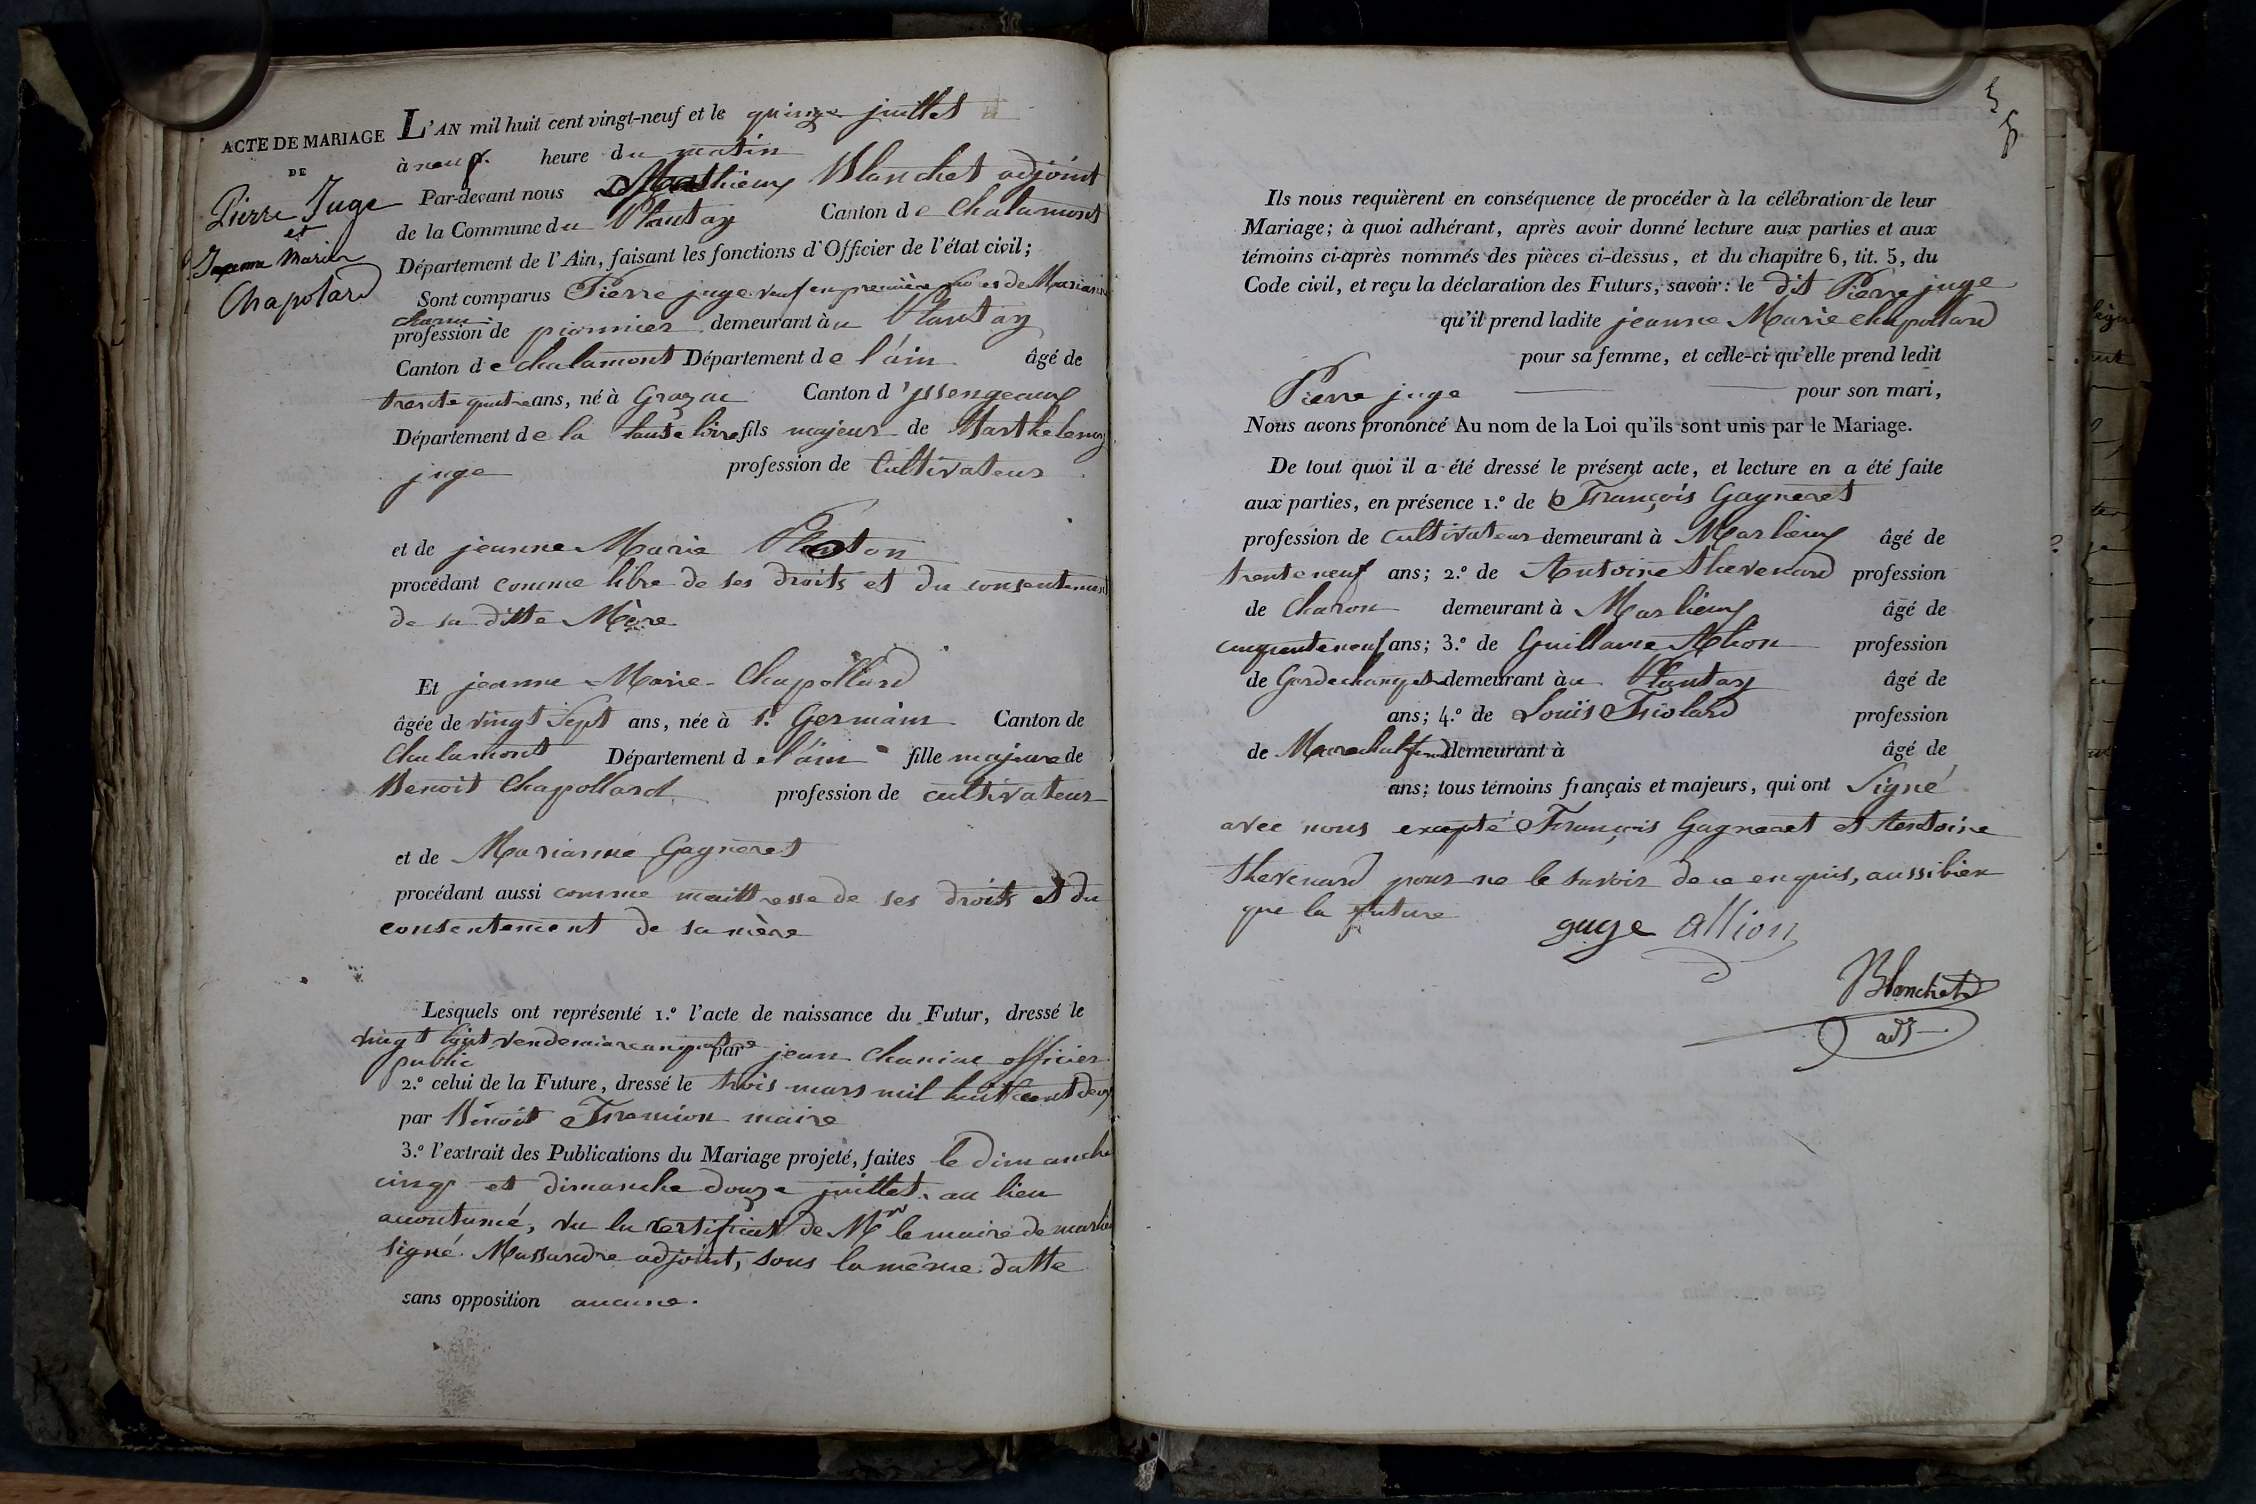 ACTE DE MARIAGE
DE
Pierre Juge
et
Jeanne Marie
Chapolard
L'AN mil huit cent vingt-neuf et le quinze juillet
à neuf heure du matin
Par-devant nous Mathieux Blanchet adjoint
de la Commune du Plantay Canton de Chalamont
Département de l'Ain, faisant les fonctions d'Officier de l'état civil;
Sont comparus Pierre juge veuf en première de Marianne
profession de pionnier demeurant au Plantay
Canton de chalamont Département de l'ain âgé de
trente quatre ans, né à Grazac Canton d'yssengeaux
Département de la haute loire fils majeur de Barthelemy
juge profession de Cultivateur
et de jeanne Marie
procédant comme libre de ses droits et du consentement
de sa ditte Mère
Et jeanne Marie Chapollard
âgée de vingt Sept ans, née à St. Germain Canton de
Chalamont Département de l'ain fille majeure de
Benoit Chapollard profession de cultivateur
et de Marianne Gagneret
procédant aussi comme maittresse de ses droits et du
consentement de sa mère
Lesquels ont représenté 1.º l'acte de naissance du Futur, dressé le
vingt huit vendemiaire an quatre par jean Chaniac officier
public
2.º celui de la Future, dressé le trois mars mil huit cent deux
par Bénoit Tremion maire
3.º l'extrait des Publications du Mariage projeté, faites le dimanche
cinq et dimanche douze juillet au lieu
acoutumé, vu le certificat de Mr le maire de marlieu
signé Massardre adjoint, sous la même datte
sans opposition aucune.
Ils nous requièrent en conséquence de procéder à la célébration de leur
Mariage; à quoi adhérant, après avoir donné lecture aux parties et aux
témoins ci-après nommés des pièces ci-dessus, et du chapitre 6, tit. 5, du
Code civil, et reçu la déclaration des Futurs, savoir: le dit Pierre juge
qu'il prend ladite jeanne Marie chapollard
pour sa femme, et celle-ci qu'elle prend ledit
Pierre juge pour son mari,
Nous avons prononcé Au nom de la Loi qu'ils sont unis par le Mariage.
De tout quoi il a été dressé le présent acte, et lecture en a été faite
aux parties, en présence 1.º de François Gagneret
profession de cultivateur demeurant à Marlieux âgé de
trente neuf ans; 2.º de Antoine thevenard profession
de Charon demeurant à Marlieux âgé de
cinquante neuf ans; 3.º de Guillaume Alion profession
de Gardechampetre demeurant au Plantay âgé de
ans; 4.º de Louis profession
de demeurant à âgé de
ans; tous témoins français et majeurs, qui ont Signé
avec nous excepté François Gagneret et Antoine
thevenard pour ne le savoir de ce enquis, aussi bien
que la future
guge allion
Blanchet
adj